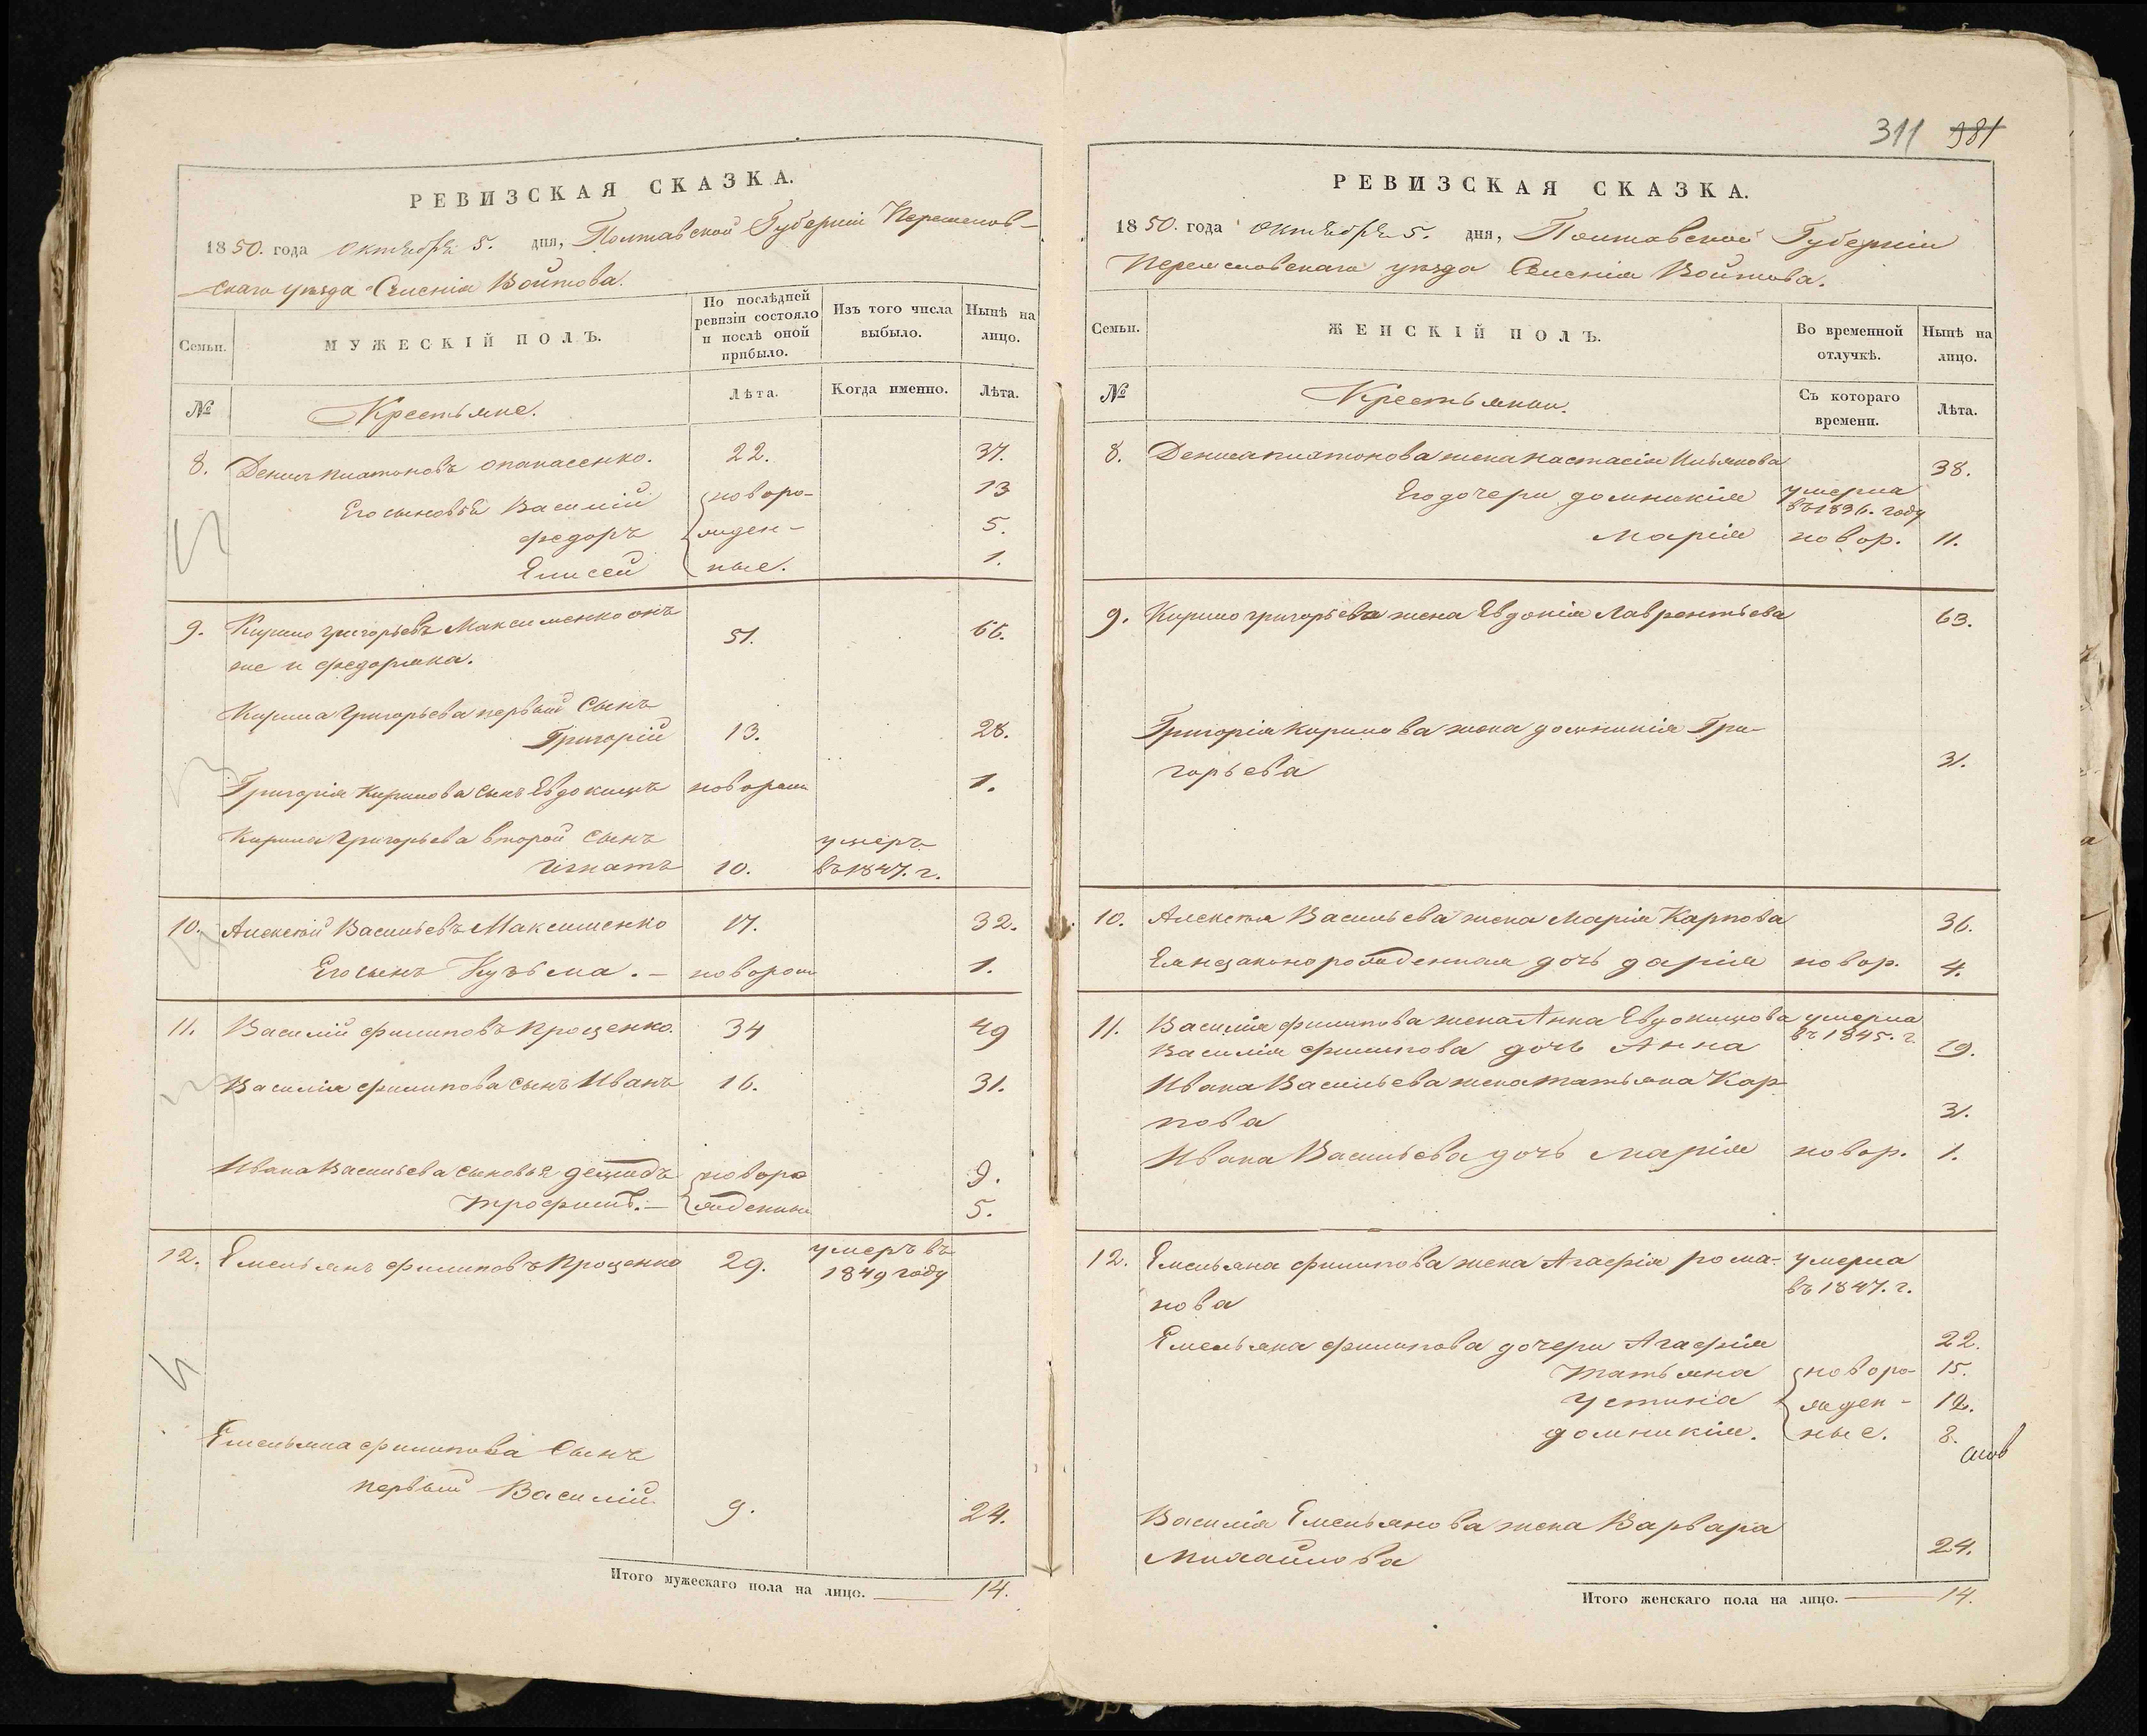 РЕВИЗСКАЯ СКАЗКА.
1850. года Октября 5. дня, Полтавской Губерніи Переяслов-
скаго уезда Селенія Войтова.
Семьи.
МУЖЕСКІЙ ПОЛЪ.
По послѣдней ревизіи состояло и послѣ оной прибыло.
Изъ того числа выбыло.
Нынѣ на лицо.
№
Крестьяне.
Лѣта.
Когда именно.
Лѣта.
8. Денисъ Платоновъ Опанасенко. 22. 37.
Его сыновья Василій новоро- 13
Федоръ жден- 5.
Елисей ные. 1.
9. Кирило Григорьевъ Максименко онъ 51. 66.
же и Федоряка.
Кирила Григорьева первый Сынъ
Григорій 13. 28.
Григорія Кирилова Сынъ Евдокимъ новорож 1.
Кирила Григорьева второй Сынъ умеръ
Игнатъ 10. въ 1847. г.
10. Алексѣй Васильевъ Максименко 17. 32.
Его сынъ Кузьма. — новорож 1.
11. Василій Филиповъ Проценко. 34 49
Василія Филипова Сынъ Иванъ 16. 31.
Ивана Васильева Сыновья Демидъ новоро 9.
Трофимъ. — жденныи 5.
12. Емельянъ Филиповъ Проценко 29. умеръ въ
1849 году
Емельяна Филипова Сынъ
первый Василій 9. 24.
Итого мужескаго пола на лицо. 14.
311 981
РЕВИЗСКАЯ СКАЗКА.
1850. года Октября 5. дня, Полтавской Губерніи
Переясловскаго уезда Селенія Войтова.
Семьи.
ЖЕНСКІЙ ПОЛЪ.
Во временной отлучкѣ.
Нынѣ на лицо.
№
Крестьянки.
Съ котораго времени.
Лѣта.
8. Дениса Платонова жена Настасія Ильянова 38.
Его дочери Домникія умерла
въ 1836. году
Марія новор. 11.
9. Кирило Григорьева жена Евдокія Лаврентьева 63.
Григорія Кирилова жена Домникія Гри-
горьева 31.
10. Алексѣя Васильева жена Марія Карпова 36.
Ея незаконорожденная дочь Дарія новор. 4.
11. Василія Филипова жена Анна Евдокимова умерла
въ 1845. г
Василія Филипова дочь Анна 19.
Ивана Васильева жена Татьяна Кар-
пова 31.
Ивана Васильева дочь Марія новор. 1.
12. Емельяна Филипова жена Агафія Рома- умерла
нова въ 1847. г.
Емельяна Филипова дочери Агафія 22.
Татьяна новоро- 15.
Устина жден- 12.
Домникія. ные. 8.
Василія Емельянова жена Варвара
Михайлова 24.
Итого женскаго пола на лицо. 14.